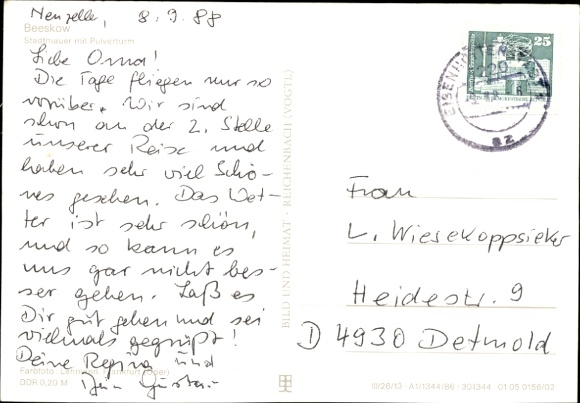 Neuzelle, 8.9.88
Beeskow
Stadtmauer mit Pulverturm
Liebe Oma!
Die Tage fliegen nur so
vorüber. Wir sind
schon an der 2. Stelle
unserer Reise und
haben sehr viel Schö-
nes gesehen. Das Wet-
ter ist sehr schön,
und so kann es
uns gar nicht bes-
ser gehen. Laß es
Dir gut gehen und sei
vielmals gegrüßt!
Deine Regina und
Dein Gustav
Farbfoto: Lehmann, Frankfurt (Oder)
DDR 0,20 M
BILD UND HEIMAT · REICHENBACH (VOGTL)
25
az
Frau
L. Wiesekoppsieker
Heidestr. 9
D 4930 Detmold
III/26/13 · A1/1344/86 · 301344 01 05 0156/02